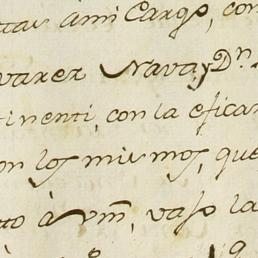 ttas à mi Cargo, con
varez Nava, y Dn.
tinenti, con la eficaz
on los mismos, que
tto à Vm, vaxo la